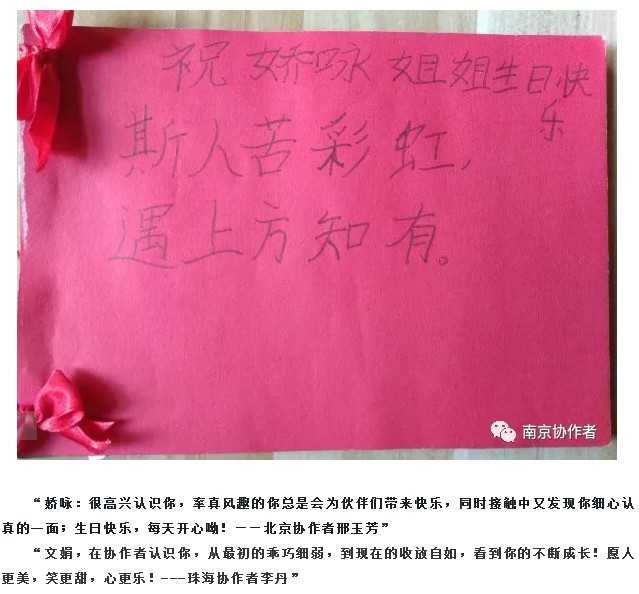 祝娇咏姐姐生日快
乐
斯人苦彩虹，
遇上方知有。
南京协作者
“娇咏：很高兴认识你，率真风趣的你总是会为伙伴们带来快乐，同时接触中又发现你细心认
真的一面；生日快乐，每天开心呦！——北京协作者邢玉芳”
“文娟，在协作者认识你，从最初的乖巧细弱，到现在的收放自如，看到你的不断成长！愿人
更美，笑更甜，心更乐！---珠海协作者李丹”